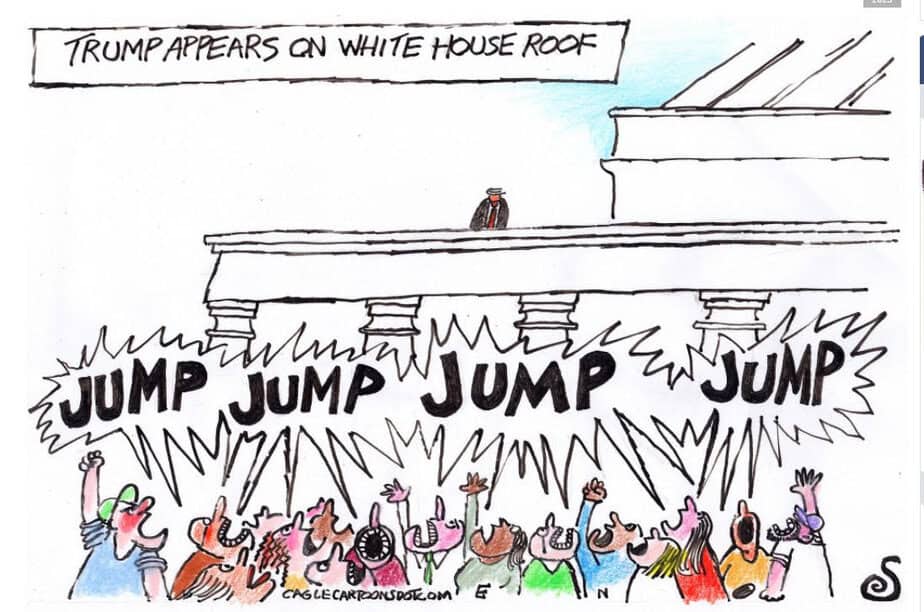 TRUMP APPEARS ON WHITE HOUSE ROOF
JUMP JUMP JUMP JUMP
CAGLECARTOONSPOTCOM E N